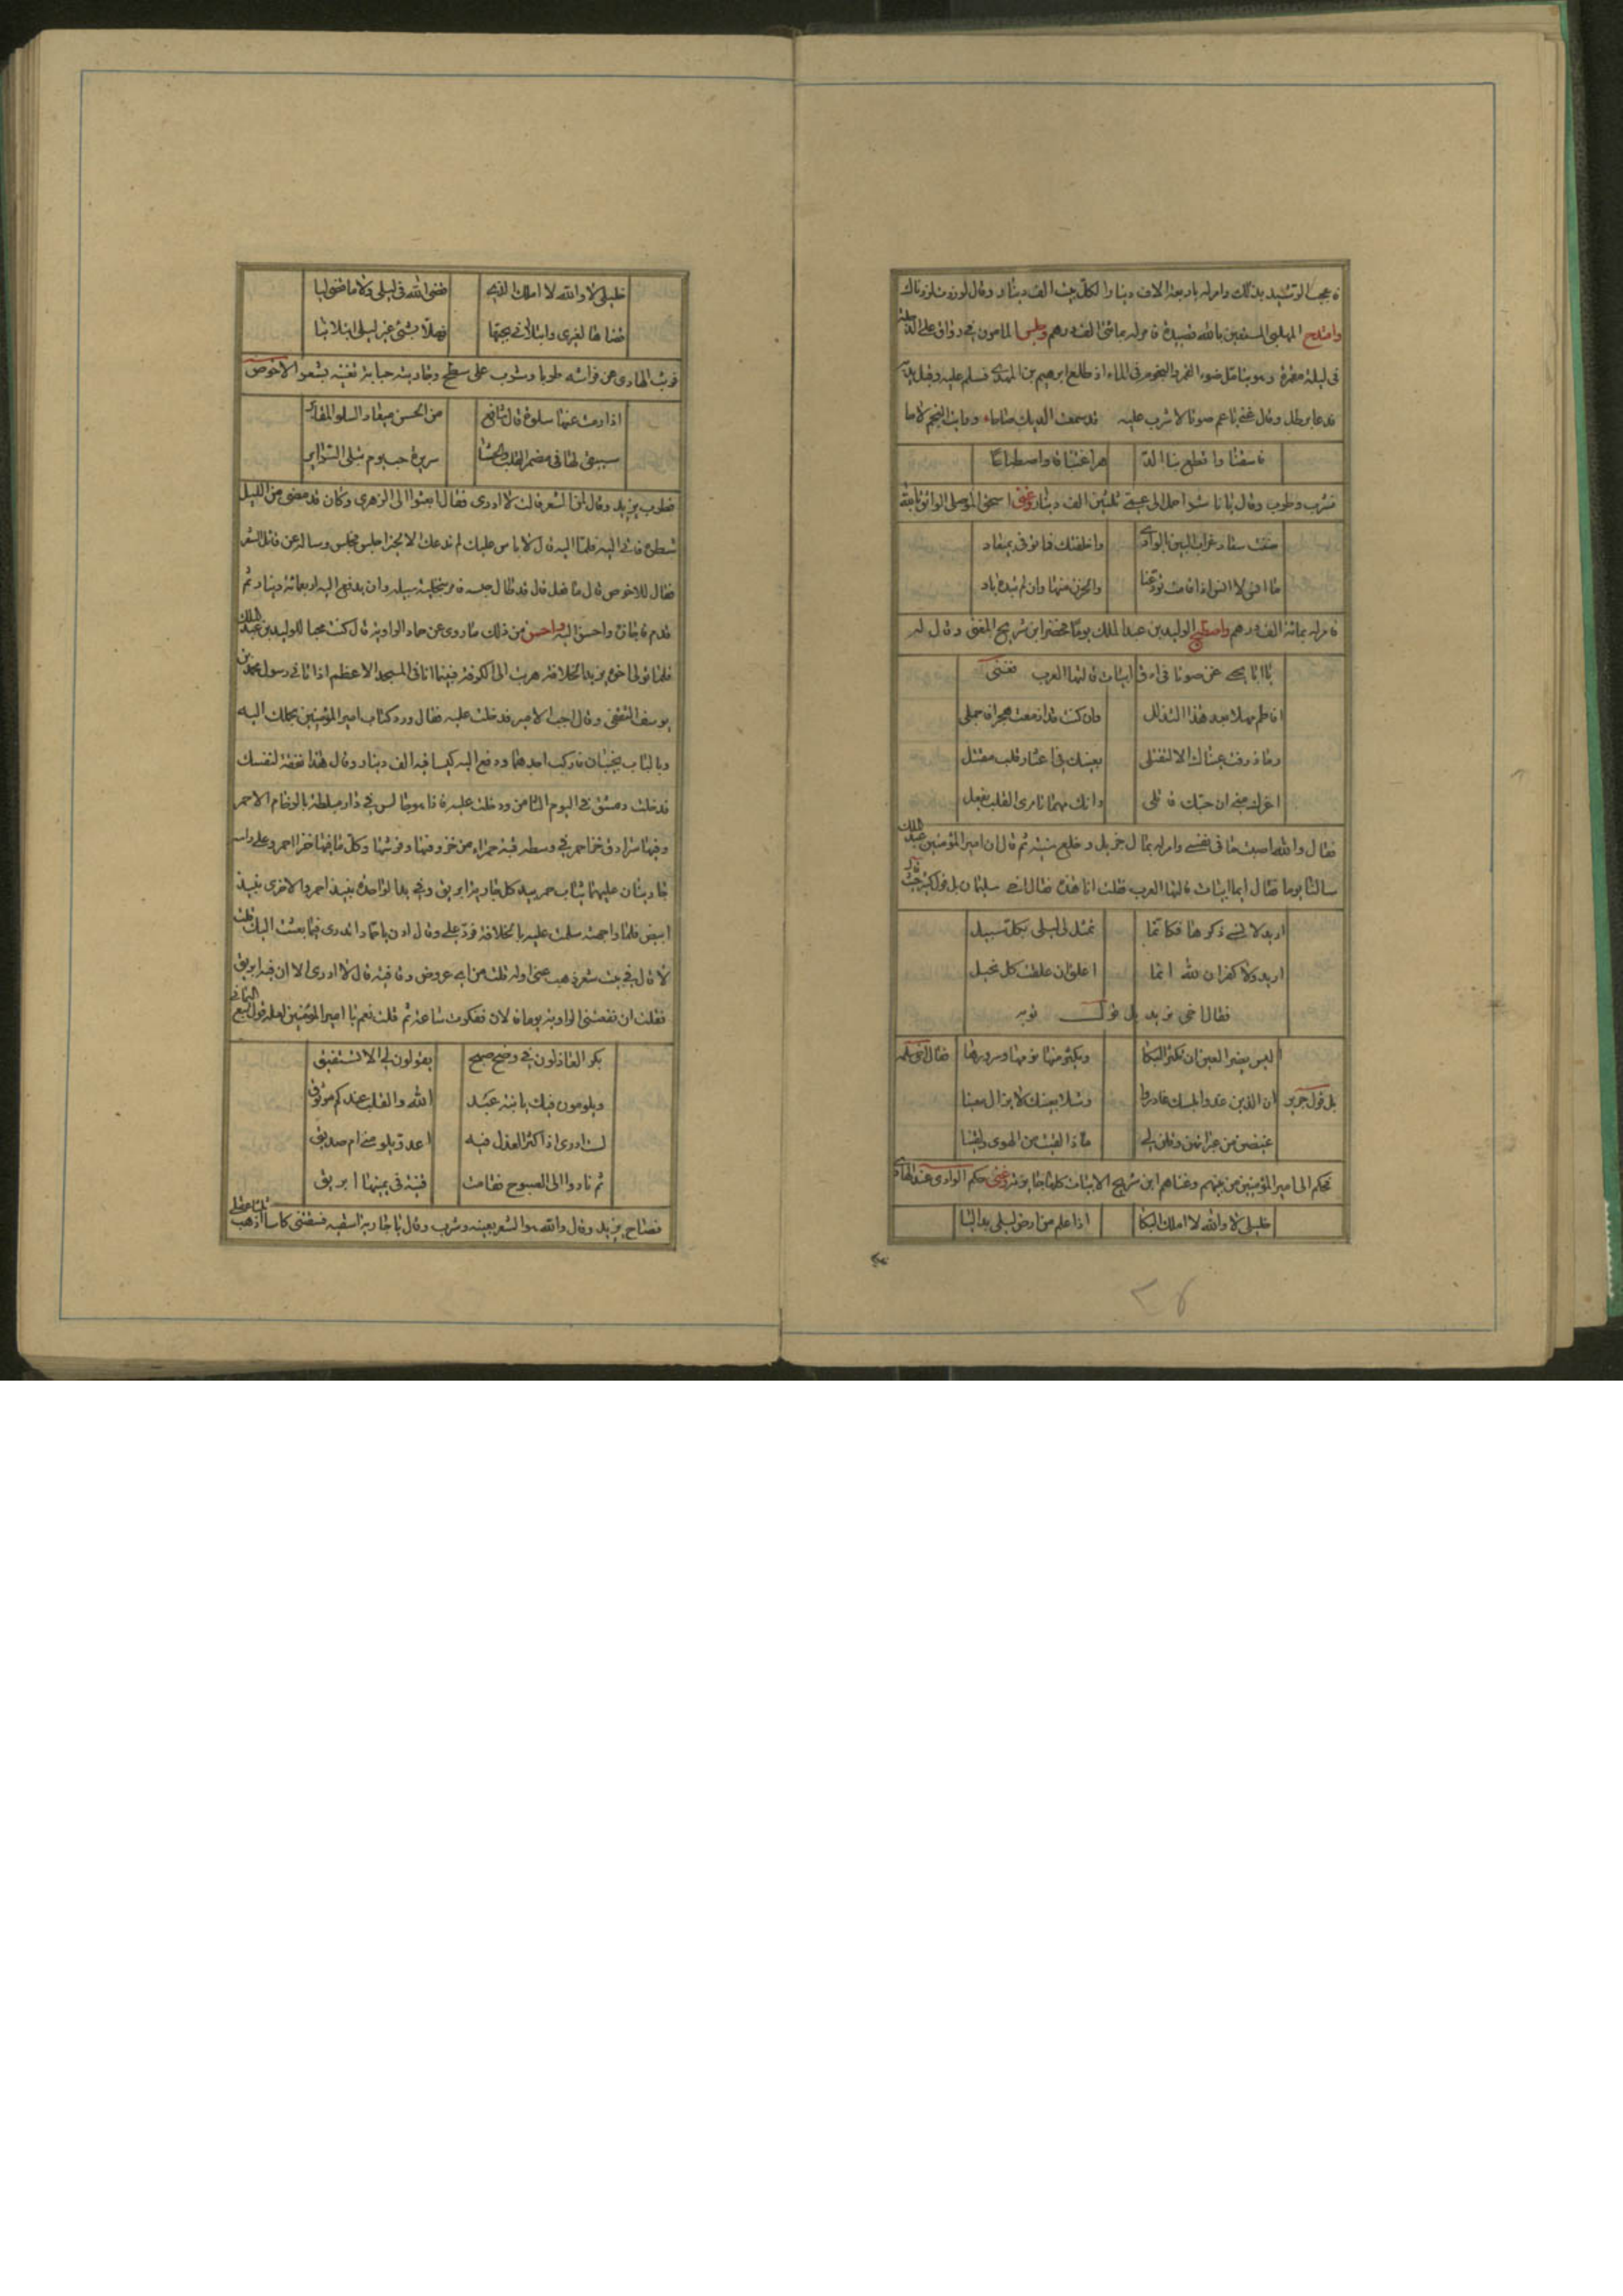 فاعجب الرشيد بذلك وامر له باربعة الاف دينار لكل بيت الف دينار وقال لو زدت لزدناك
وامتدح المهلبي المستعين بالله بقصيدة فامر له بمائتي الف درهم وجلس المامون في رواق على الدجلة
في ليلة مقمرة وهو يتامل ضوء القمر والنجوم في الماء اذ طلع ابرهيم بن المهدي فسلم عليه وقبل يديه
فدعا برطل وقال غنني يا عم صوتا لاشرب عليه قد سمعت الديك صاحا ورايت النجم لاحا
فاسقنا واقطع بنا الد
هر اغتباقا واصطباحا
فشرب وطرب وقال يا احمل الى عمي ثلثين الف دينار وغنى اسحق الموصلي الواثق بالله
ضنت سعاد غراب البين بالوادي
واخلفتك فما توفي بميعاد
ما انس لا انس اذ قامت تودعنا
والحزن منها وان لم تبده باد
فامر له بمائة الف درهم واصطبح الوليد بن عبد الملك يوما فحضر ابن سريج المغني وقال له
يا ابا يحيى غن صوتا في ارق ابيات قالتها العرب فغنى
افاطم مهلا بعد هذا التدلل
وان كنت قد ازمعت هجرا فاجملي
وما ذرفت عيناك الا لتقتلي
بعينيك في اعشار قلب مقتل
اغرك مني ان حبك قاتلي
وانك مهما تامري القلب يفعل
فقال والله اصبت ما في نفسي وامر له بمال جزيل وخلع سنية ثم قال ان امير المؤمنين عبد الملك
سالنا يوما فقال ايما ابيات قالتها العرب فقلت انا هذه فقال اخي سليمان بل قول كثير حيث قال
اريد لانسى ذكرها فكانما
تمثل لي ليلى بكل سبيل
اريد ولا كفران لله انما
فقال اخي يزيد بل قول توبة
ليس يضير العين ان تكثر البكا
ويكثر منها نومها وسرورها
فقال اخي مسلمة
بل قول جرير
ان الذين غدوا بلبك غادروا
وشلا بعينك لا يزال معينا
غيضن من عبراتهن وقلن لي
ماذا لقيت من الهوى ولقينا
فحكم الى امير المؤمنين من بينهم وغناهم ابن سريج الابيات كلها وغنى حكم الوادي عند الهادي
خليلي لا والله لا املك البكا
اذا علم من ارض ليلى بدا ليا
خليلي لا والله لا املك الذي
قضى الله في ليلى ولا ما قضى ليا
قضاها لغيري وابتلاني بحبها
فهلا بشئ غير ليلى ابتلانيا
فوثب الهادي عن فراشه طربا وشرب على سطح وجاريته حبابة تغنيه بشعر الاخوص
اذا رمت عنها سلوة قال شافع
من الحسن ميعاد السلو المقابر
سيبقى لها في مضمر القلب والحشا
سريرة حب يوم تبلى السرائر
فطرب يزيد وقال لمن الشعر قالت لا ادري فقال ابعثوا الى الزهري وكان قد مضى من الليل
شطره فاتي اليه فلما اليه قال لا باس عليك لم ندعك الا لخير اجلس فجلس وساله عن قائل الشعر
فقال للاخوص قال ما فعل قال قد طال حبسه فامر بتخلية سبيله وان يدفع اليه اربعمائة دينار ثم
قدم فاجازه واحسن اليه واحسن من ذلك ما روي عن حماد الراوية قال كنت محبا للوليد بن عبد الملك
فلما تولى اخوه يزيد الخلافة هربت الى الكوفة فبينما انا في المسجد الاعظم اذ اتاني رسول محمد بن
يوسف الثقفي وقال اجب الامير فدخلت عليه فقال ورد كتاب امير المؤمنين بحملك اليه
وبالباب نجيبان فاركب احدهما ودفع اليه كيسا فيه الف دينار وقال هذا نفقة لنفسك
فدخلت دمشق في اليوم الثامن ودخلت عليه فاذا هو جالس في دار مبلطة بالرخام الاحمر
وفيها سرادق خز احمر في وسطه قبة حمراء من خز وفيها وفرشها وكل ما فيها خز احمر وعلى راسه
جاريتان عليهما ثياب حمر بيد كل جارية ابريق وفي يد الواحدة نبيذ احمر والاخرى نبيذ
ابيض فلما واجهته سلمت عليه بالخلافة فرد علي وقال ادن يا حماد اتدري فيما بعثت اليك قلت
لا قال في بيت شعر ذهب عني اوله قلت من اي عروض وقافية قال لا ادري الا ان فيه ابريق
فقلت ان نفعتني الراوية يوما فالان ففكرت ساعة ثم قلت نعم يا امير المؤمنين لعله قول تبع اليماني
بكر العاذلون في وضح صبح
يقولون لي الا تستفيق
ويلومون فيك يا ابنة عبد
الله والقلب عندكم موثوق
لست ادري اذ اكثر العذل فيه
اعدو يلومني ام صديق
ثم نادوا الى الصبوح فقامت
قينة في يمينها ابريق
فصاح يزيد وقال والله هو الشعر بعينه وشرب وقال يا جارية اسقيه فسقتني كاسا اذهب ثلث عقلي